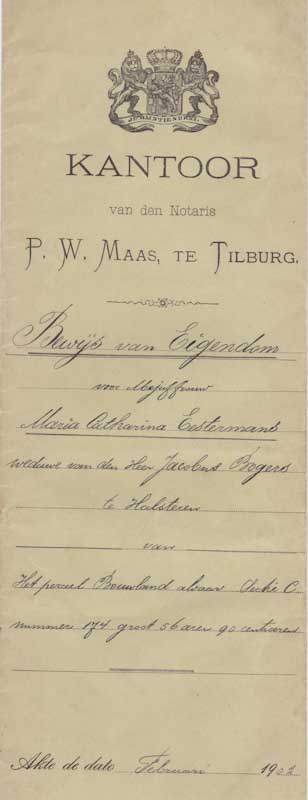 JE MAINTIENDRAI
KANTOOR
van den Notaris
P. W. MAAS, TE TILBURG.
Bewijs van Eigendom
voor Mejuffrouw
Maria Catharina Eestermans
weduwe van den Heer Jacobus Bogers
te Halsteren
van
Het perceel Bouwland aldaar Sectie C.
nummer 174 groot 56 aren 90 centiaren
Akte de dato Februari 1902